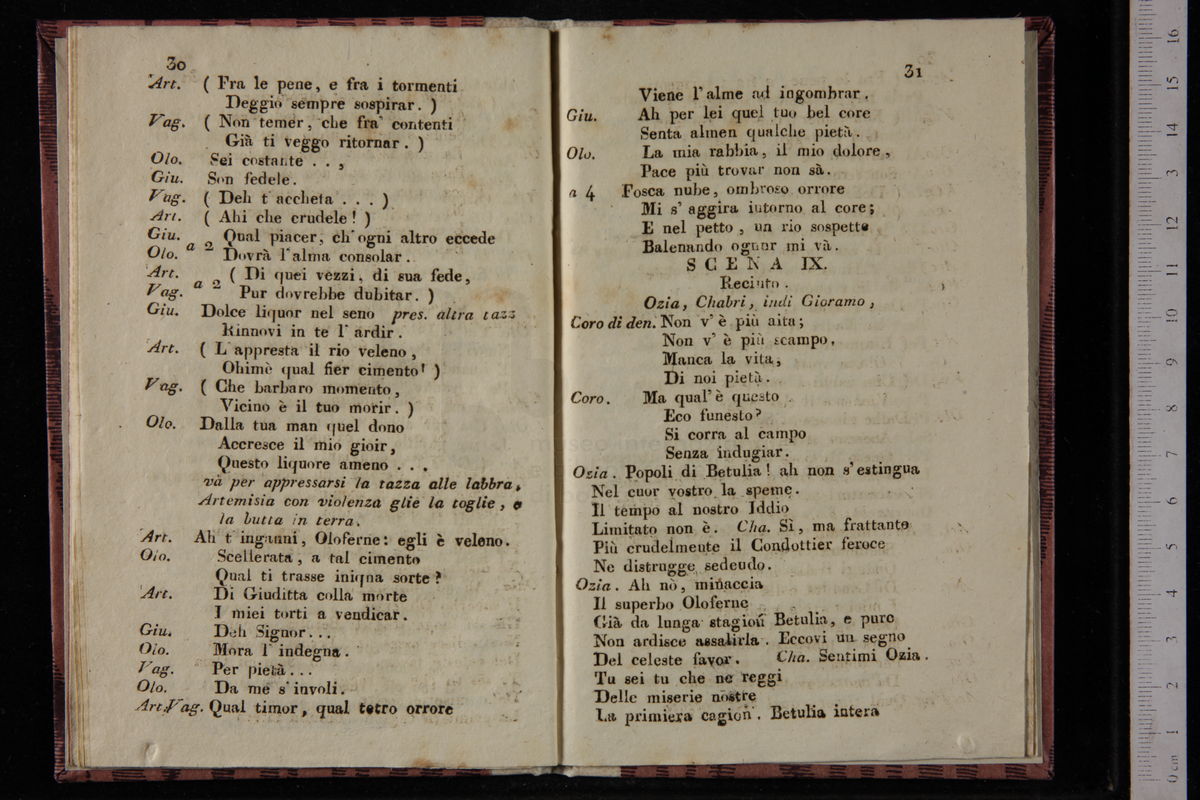 30
Art. ( Fra le pene, e fra i tormenti
Deggio sempre sospirar. )
Vag. ( Non temer, che fra' contenti
Già ti veggo ritornar. )
Olo. Sei costante . . ,
Giu. Son fedele.
Vag. ( Deh t'accheta . . . )
Art. ( Ahi che crudele! )
Giu. Qual piacer, ch'ogni altro eccede
Olo. a 2 Dovrà l'alma consolar.
Art. ( Di quei vezzi, di sua fede,
Vag. a 2 Pur dovrebbe dubitar. )
Giu. Dolce liquor nel seno pres. altra tazz
Rinnovi in te l' ardir.
Art. ( L'appresta il rio veleno,
Ohimè qual fier cimento! )
Vag. ( Che barbaro momento,
Vicino è il tuo morir. )
Olo. Dalla tua man quel dono
Accresce il mio gioir,
Questo liquore ameno . . .
và per appressarsi la tazza alle labbra,
Artemisia con violenza glie la toglie, e
la butta in terra.
Art. Ah t'inganni, Oloferne: egli è veleno.
Olo. Scellerata, a tal cimento
Qual ti trasse iniqna sorte?
Art. Di Giuditta colla morte
I miei torti a vendicar.
Giu. Deh Signor...
Olo. Mora l'indegna.
Vag. Per pietà...
Olo. Da me s'involi.
Art. Vag. Qual timor, qual tetro orrore
31
Viene l'alme ad ingombrar.
Giu. Ah per lei quel tuo bel core
Senta almen qualche pietà.
Olo. La mia rabbia, il mio dolore,
Pace più trovar non sà.
a 4 Fosca nube, ombroso orrore
Mi s' aggira intorno al core;
E nel petto, un rio sospetto
Balenando ognor mi và.
SCENA IX.
Recinto.
Ozia, Chabri, indi Gioramo,
Coro di den. Non v' è più aita;
Non v' è più scampo,
Manca la vita,
Di noi pietà.
Coro. Ma qual' è questo
Eco funesto?
Si corra al campo
Senza indugiar.
Ozia. Popoli di Betulia! ah non s'estingua
Nel cuor vostro la speme.
Il tempo al nostro Iddio
Limitato non è. Cha. Sì, ma frattanto
Più crudelmente il Condottier feroce
Ne distrugge sedendo.
Ozia. Ah nò, minaccia
Il superbo Oloferne
Già da lunga stagion Betulia, e pure
Non ardisce assalirla. Eccovi un segno
Del celeste favor. Cha. Sentimi Ozia.
Tu sei tu che ne reggi
Delle miserie nostre
La primiera cagion. Betulia intera
0 cm 1 2 3 4 5 6 7 8 9 10 11 12 13 14 15 16